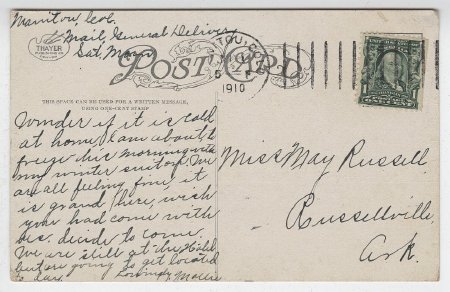 Manitou, Colo.
Mail, General Delivery
Sat, Morn
THAYER
POST CARD
TOU, CO
5
1910
1
THIS SPACE CAN BE USED FOR A WRITTEN MESSAGE,
USING ONE-CENT STAMP
Wonder if it is cold
at home, I am about to
freeze this morning with
my winter suit on. We
are all feeling fine, it
is grand here, wish
you had come with
us. decide to come.
We are still at the Hotel
but are going to get located
to-day. Lovingly Mollie
Miss May Russell,
Russellville,
Ark.